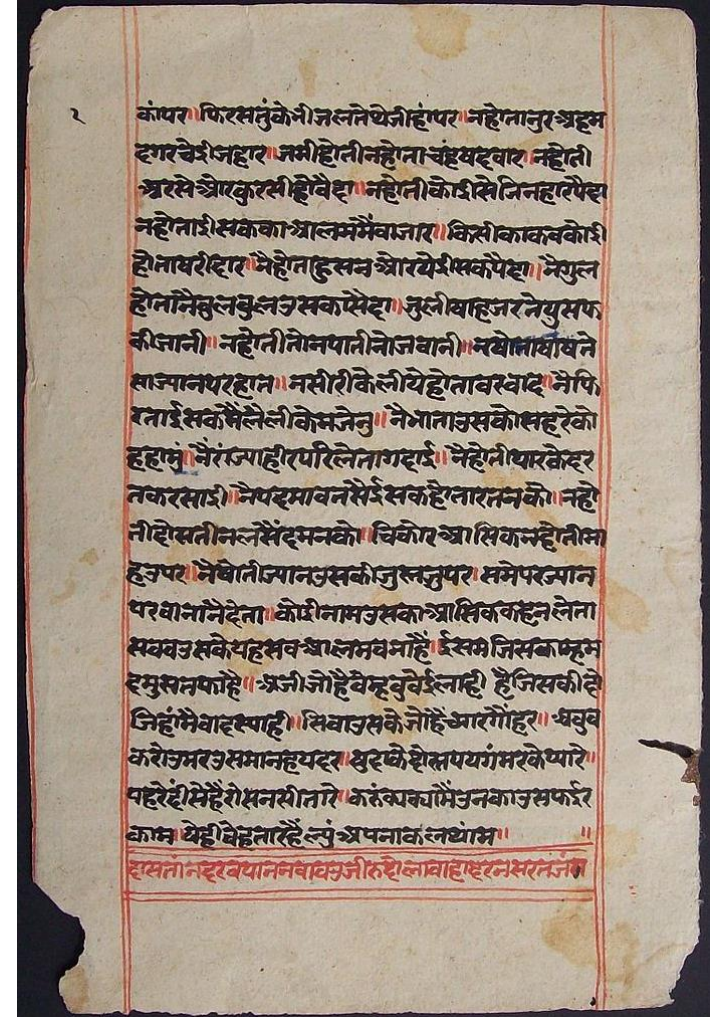 २
कांपर॥ फिरसतुंकेभीजलतेथेजीहांपर॥ नहोतानुरअहम
दगरचेदीजहार॥ जमीहोतीनहोताचंद्रयदवार॥ नहोती
अरसेओरकुरसीहोवैदा॥ नहोतीकोईसेजिनहारपैदा
नहोताईसकका आलममैंवाजार॥ किसीकाकबकोई
होताषरीदार॥ नैहोताहुसनओरयेईसकपैदा॥ नैगुल
होतानैबुलबुलउसकापैदा॥ जुलीषाहजरतेयुसफ
कीजानी॥ नहोतीतोनपातीनोजवानी॥
साज्यानथरहान॥ नसीरीकेलीयेहोताबरवाद॥ नैफि
रताईसकमैंलैलीकेमजेनु॥ नैभाताउसकोसहरेको
हहामुं॥ नैरांज्याहीरपरिलेतागदाई॥ नैहोतीयारकेदर
तकरसाई॥ नैपदमावतसैईसकहोतारतनको॥ नहो
तीदोसतीनलसैंदमनको॥ चिकोरआसिकनहोतीमा
हउपर॥ नैषोतीज्यानउसकीजुसतजुपर॥ समेपरज्यान
परवानानैदेता॥ कोईनामउसकाआसिककहनलेता
सबबउसकेयहसबआलमबनाहै॥ ईसमजिसकामहम
दमुसतफाहै॥ अजीजोहैवेमहबुबेईलाही है जिसकीदो
जिहांमैबादस्याही॥ सिवाउसकेजोहैआरगौहर॥ अबुब
करोउमरउसमानहयदर॥ षुदाकेदोसतपयगंमरकेप्यारे॥
पहरेदींसेहैंरोसनसीतारे॥ करुंक्याक्यामैंउनकाउसफईर
काम॥ येहीबेहतरहैल्युंअपनाकलथांम॥ ॥